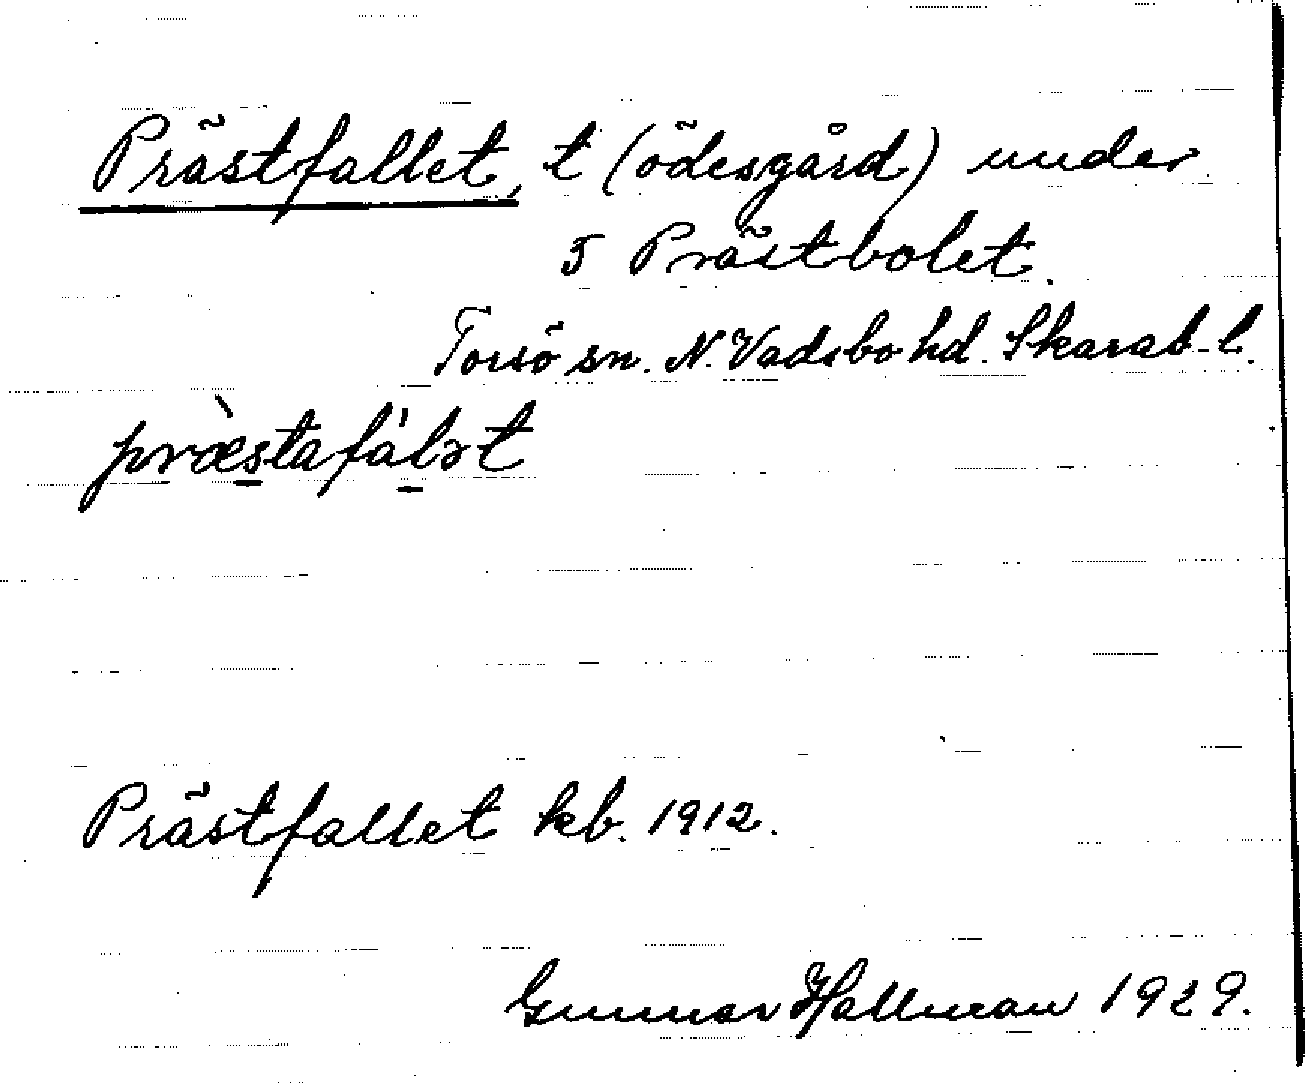 Prästfallet, t (ödesgård) under
5 Prästbolet.
Torsö sn. N. Vadsbo hd. Skarab. l.
præ̀stafálət
Prästfallet kb. 1912.
Gunnar Hallman 1929.